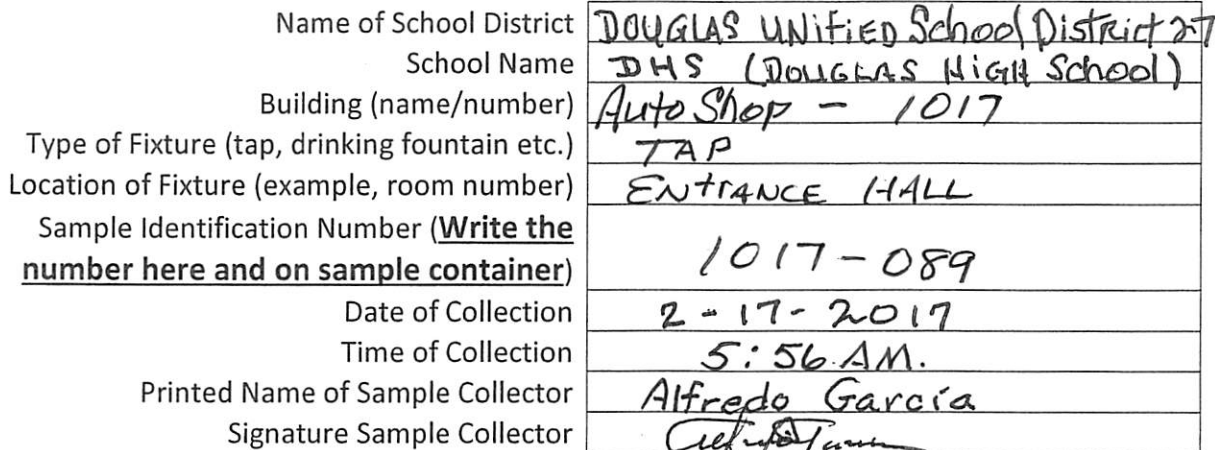 Name of School District DOUGLAS UNIFIED School District 27
School Name DHS (DOUGLAS HIGH School)
Building (name/number) Auto Shop - 1017
Type of Fixture (tap, drinking fountain etc.) TAP
Location of Fixture (example, room number) ENTRANCE HALL
Sample Identification Number (Write the
number here and on sample container) 1017-089
Date of Collection 2-17-2017
Time of Collection 5:56 AM.
Printed Name of Sample Collector Alfredo García
Signature Sample Collector